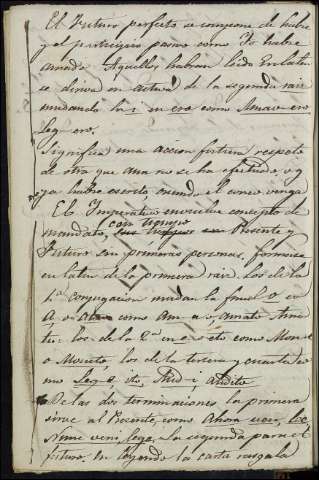 El Futuro perfecto se compone de habré
y el participio pasivo como Yo habré
amado Aquellos habran leido En latin
se deriva en activa de la segunda raiz
mudando la i en ero como Amav-ero
Leg-ero.
Significa una accion futura respeto
de otra que aun no se ha efectuado, v g
ya habre escrito, cuando el correo venga
El Imperativo envuelve concepto de
mandato, con tiempo Presente y
Futuro con primeras personas, formense
en latin de la primera raiz. los de la
1ª conjugacion mudan la final o en
a, o ato como Am-a o, amato Ama
los de la 2ª en e o eto como Mon-e
o Moneto, los de la tercera y cuarta
Leg-e, ito, Aud-i audito
De las dos terminaciones la primera
sirve al Presente, como Ahora ven, lee
Nunc veni, lege, La segunda para el
futuro, En leyendo la carta rasgala